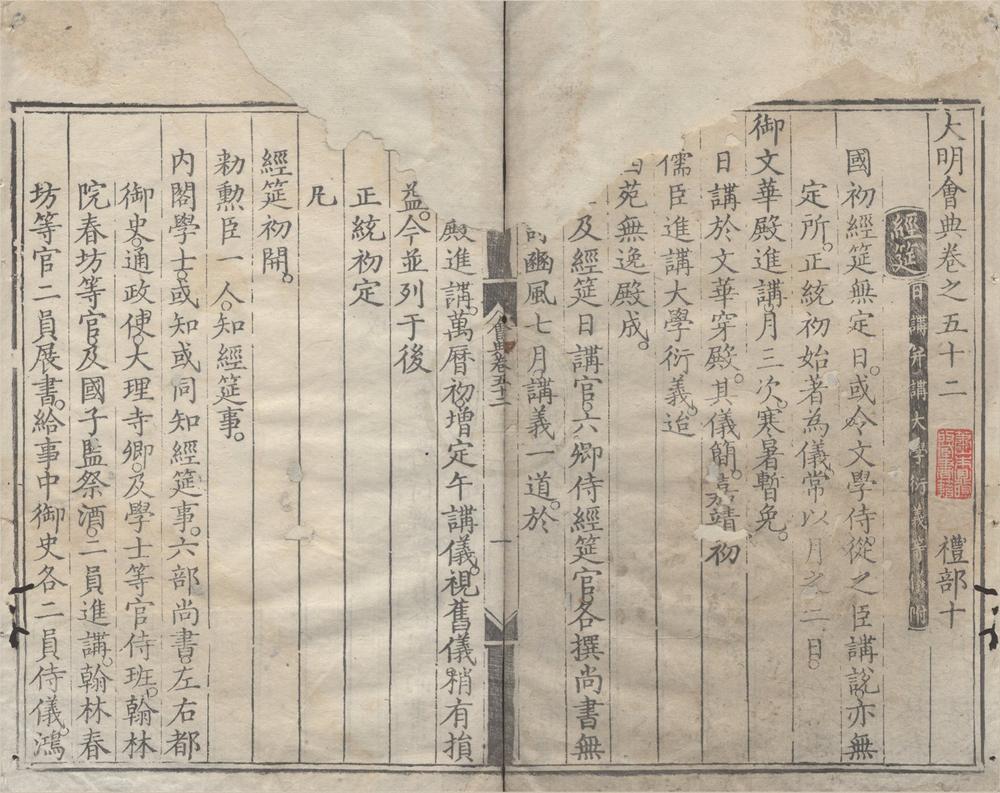 大明會典卷之五十二 禮部十
經筵 日講并講大學衍義等儀附
國初經筵無定日。或令文學侍從之臣講說。亦無
定所。正統初始著為儀。常以月之二日。
御文華殿進講。月三次。寒暑暫免。
日講於文華穿殿。其儀簡。嘉靖初
儒臣進講大學衍義。迨
西苑無逸殿成。
及經筵日講官。六卿侍經筵官。各撰尚書無
詩豳風七月講義一道。於
舊典卷五十二
一
殿進講。萬曆初。增定午講儀。視舊儀。稍有損
益。今並列于後
正統初定
凡
經筵初開。
勑勲臣一人。知經筵事。
內閣學士。或知或同知經筵事。六部尚書。左右都
御史。通政使。大理寺卿。及學士等官侍班。翰林
院春坊等官。及國子監祭酒。二員進講。翰林春
坊等官二員展書。給事中御史各二員侍儀。鴻